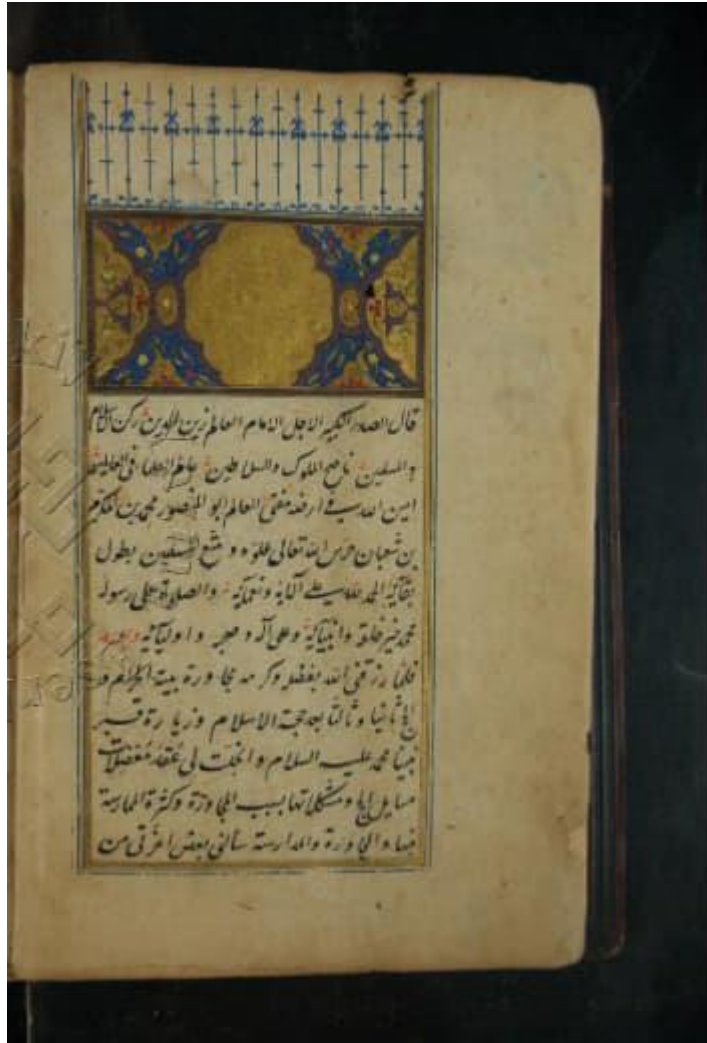 قال الصدر الكبير الاجل الامام العالم زين الدين ركن الاسلام
والمسلمين ناصح الملوك والسلاطين
امين الله في ارضه مفتى العالم ابو المنصور محمد بن المكرم
بن شعبان حرس الله تعالى علوه ومتع المسلمين بطول
بقائه الحمد لله على آلائه ونعمائه والصلوة على رسوله
محمد خير خلقه وانبيائه وعلى آله وصحبه واوليائه وبعد
فلما رزقنى الله بفضله وكرمه مجاورة بيت الحرام و
الحج ثانيا وثالثا بعد حجة الاسلام وزيارة قبر
نبينا محمد عليه السلام وانحلت لى عقد معضلات
مسايل الحج ومشكلاتها بسبب المجاورة وكثرة الممارسة
فيها والمحاورة والمدارسة سألنى بعض اعزتى من